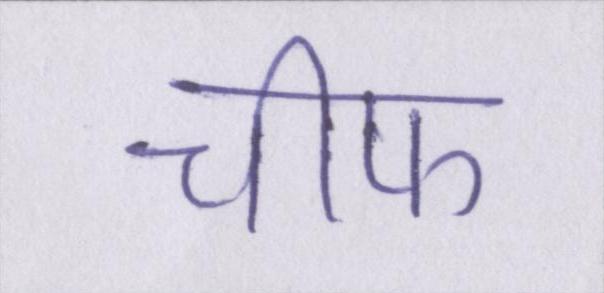 चीफ